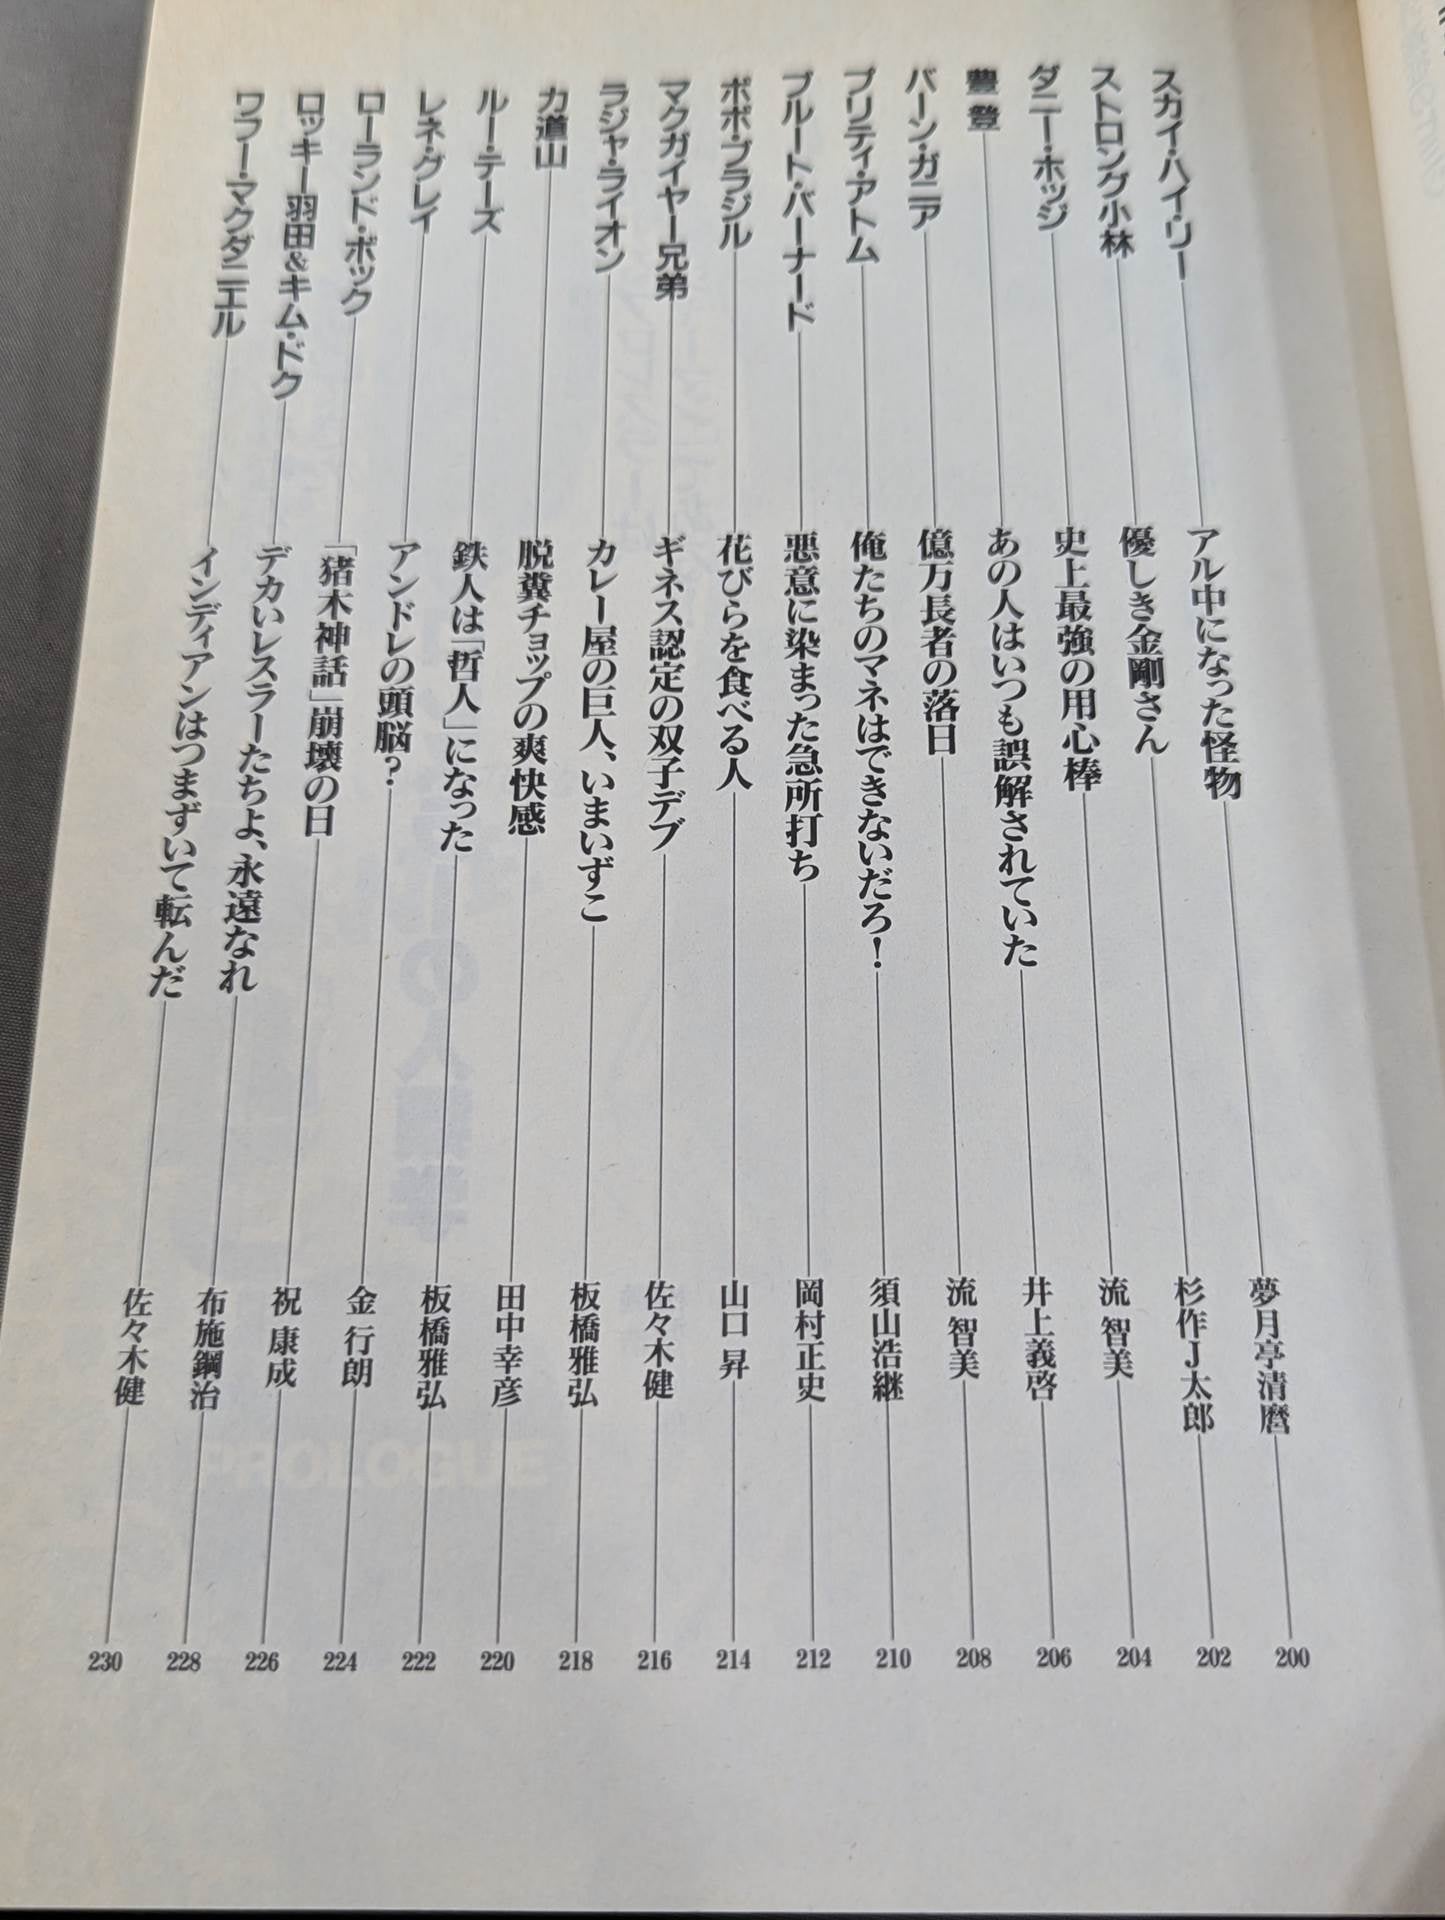 スカイ・ハイ・リー アル中になった怪物 夢月亭清麿 200
ストロング小林 優しき金剛さん 杉作J太郎 202
ダニー・ホッジ 史上最強の用心棒 流 智美 204
豊 登 あの人はいつも誤解されていた 井上義啓 206
バーン・ガニア 億万長者の落日 流 智美 208
プリティ・アトム 俺たちのマネはできないだろ! 須山浩継 210
ブルート・バーナード 悪意に染まった急所打ち 岡村正史 212
ボボ・ブラジル 花びらを食べる人 山口 昇 214
マクガイヤー兄弟 ギネス認定の双子デブ 佐々木健 216
ラジャ・ライオン カレー屋の巨人、いまいずこ 板橋雅弘 218
力道山 脱糞チョップの爽快感 田中幸彦 220
ルー・テーズ 鉄人は「哲人」になった 板橋雅弘 222
レネ・グレイ アンドレの頭脳? 金 行朗 224
ローランド・ボック 「猪木神話」崩壊の日 祝 康成 226
ロッキー羽田&キム・ドク デカいレスラーたちよ、永遠なれ 布施鋼治 228
ワフー・マクダニエル インディアンはつまずいて転んだ 佐々木健 230